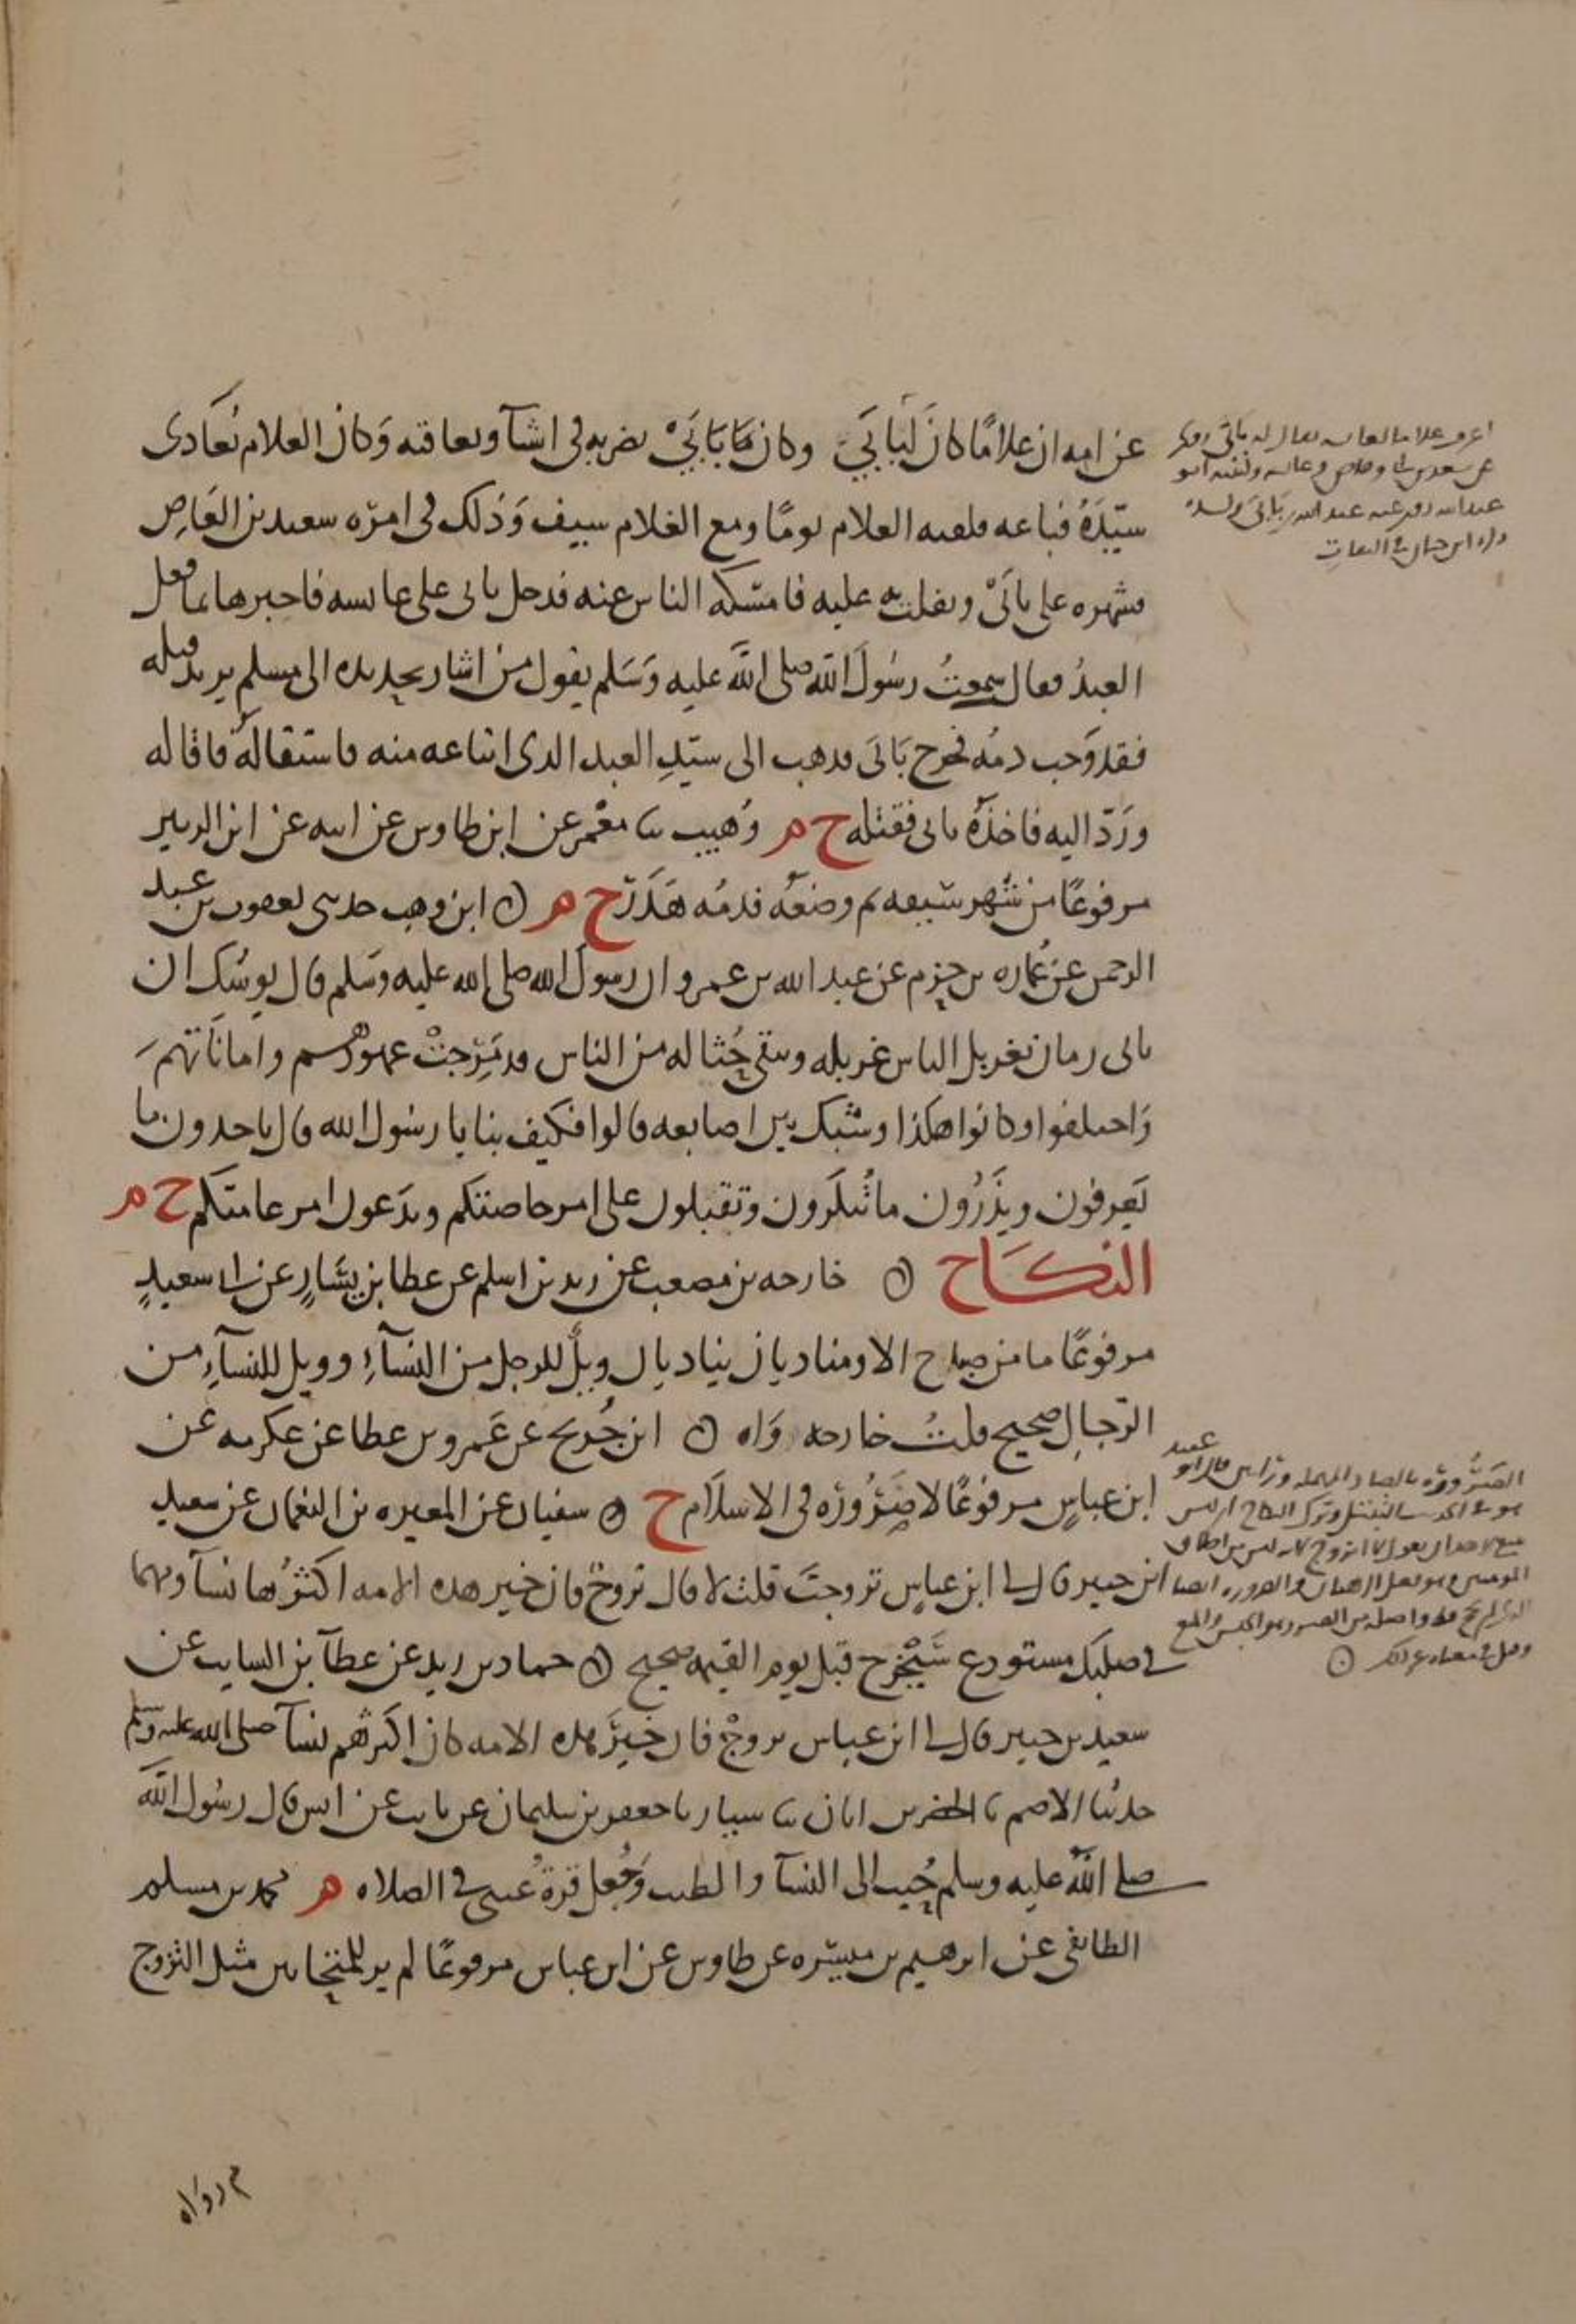 عن امه ان غلامًا كان لبابَيْ وكان بَابَيْ يضربه فى اشيآ ويعاقبه وَكان الغلام يُعَادى
سيّدَهُ فباعه فلقيه الغلام يومًا ومع الغلام سيف وَذلك فى امرة سعيد بن العَاصِ
فشهره على بابَيْ وتفلت به عليه فامسَكه الناس عنه فدخل بابى على عايشه فاخبرها بما فعل
العبدُ فقال سمعتُ رسُولَ الله صلى الله عليه وَسَلم يقول من اشار بحديده الى مسلم يريد قتله
فقد وَجب دمُه فخرج بَابَى فذهب الى سيّدِ العبد الذى ابتاعه منه فاستقالهُ فاقاله
ورَدّ اليه فاخذهُ بابى فقتله خ م وُهيب ثنا معْمر عن ابن طاوس عن ابيه عن ابن الزبير
مرفوعًا من شَهر سَيفه ثم وضعَه فدمُه هَدَرٌ خ م ابن وهب حدثنى يعقوب بن عبد
الرحمن عن عُماره بن حزم عن عبد الله بن عمرو ان رسول الله صلى الله عليه وسَلم قال يوشك ان
ياتى زمان يغربل الناس غربله ويبقى حُثاله من الناس قد مَرِجتْ عهودهم واماناتهم
وَاختلفوا وكانوا هكذا وشبك بين اصابعه قالوا فكيف بنا يا رسُول الله قال تاخذون ما
تَعرفون وتذَرُون ما تُنكرون وتقبلون على امر خاصتكم وتدَعون امر عامتكم خ م
النكَاح خارجه بن مصعب عن زيد بن اسلم عن عطا بن يسَارٍ عن ابى سعيدٍ
مرفوعًا ما من صباح الا ومناديان يناديان ويلٌ للرجل من النسآءِ وويل للنسآءِ من
الرّجال صحيح قلتُ خارجه وَاه ابن جُريج عن عَمرو بن عطا عن عكرمه عن
ابن عباسٍ مرفوعًا لا صَرُورَه فى الاسلَام خ سفيان عن المغيره بن النعمان عن سعيد
ابن جبير قال لى ابن عباسٍ تزوجتَ قلت لا قال تزوجْ فان خير هذه الامه اكثرُها نسآ ومهما
فى صلبك مستودع سَيخْرج قبل يوم القيمه صحيح حماد بن زيد عن عطآ بن السايب عن
سعيد بن جبير قال لى ابن عباس تزوجْ فان خيرَ هذه الامه كان اكثرهم نسآ صلى الله عليه وسلم
حدثنا الاصم ثنا الخضر بن ابان ثنا سيار ثنا جعفر بن سليمان عن ثابت عن انس قال رسُول الله
صلى الله عليه وسلم حُبب الى النسآ والطيب وَجُعل قرةُ عينى فى الصلاه م محمد بن مسلم
الطايفى عن ابرهيم بن ميسَره عن طاوس عن ابن عباس مرفوعًا لم ير للمتحابين مثل التزوج